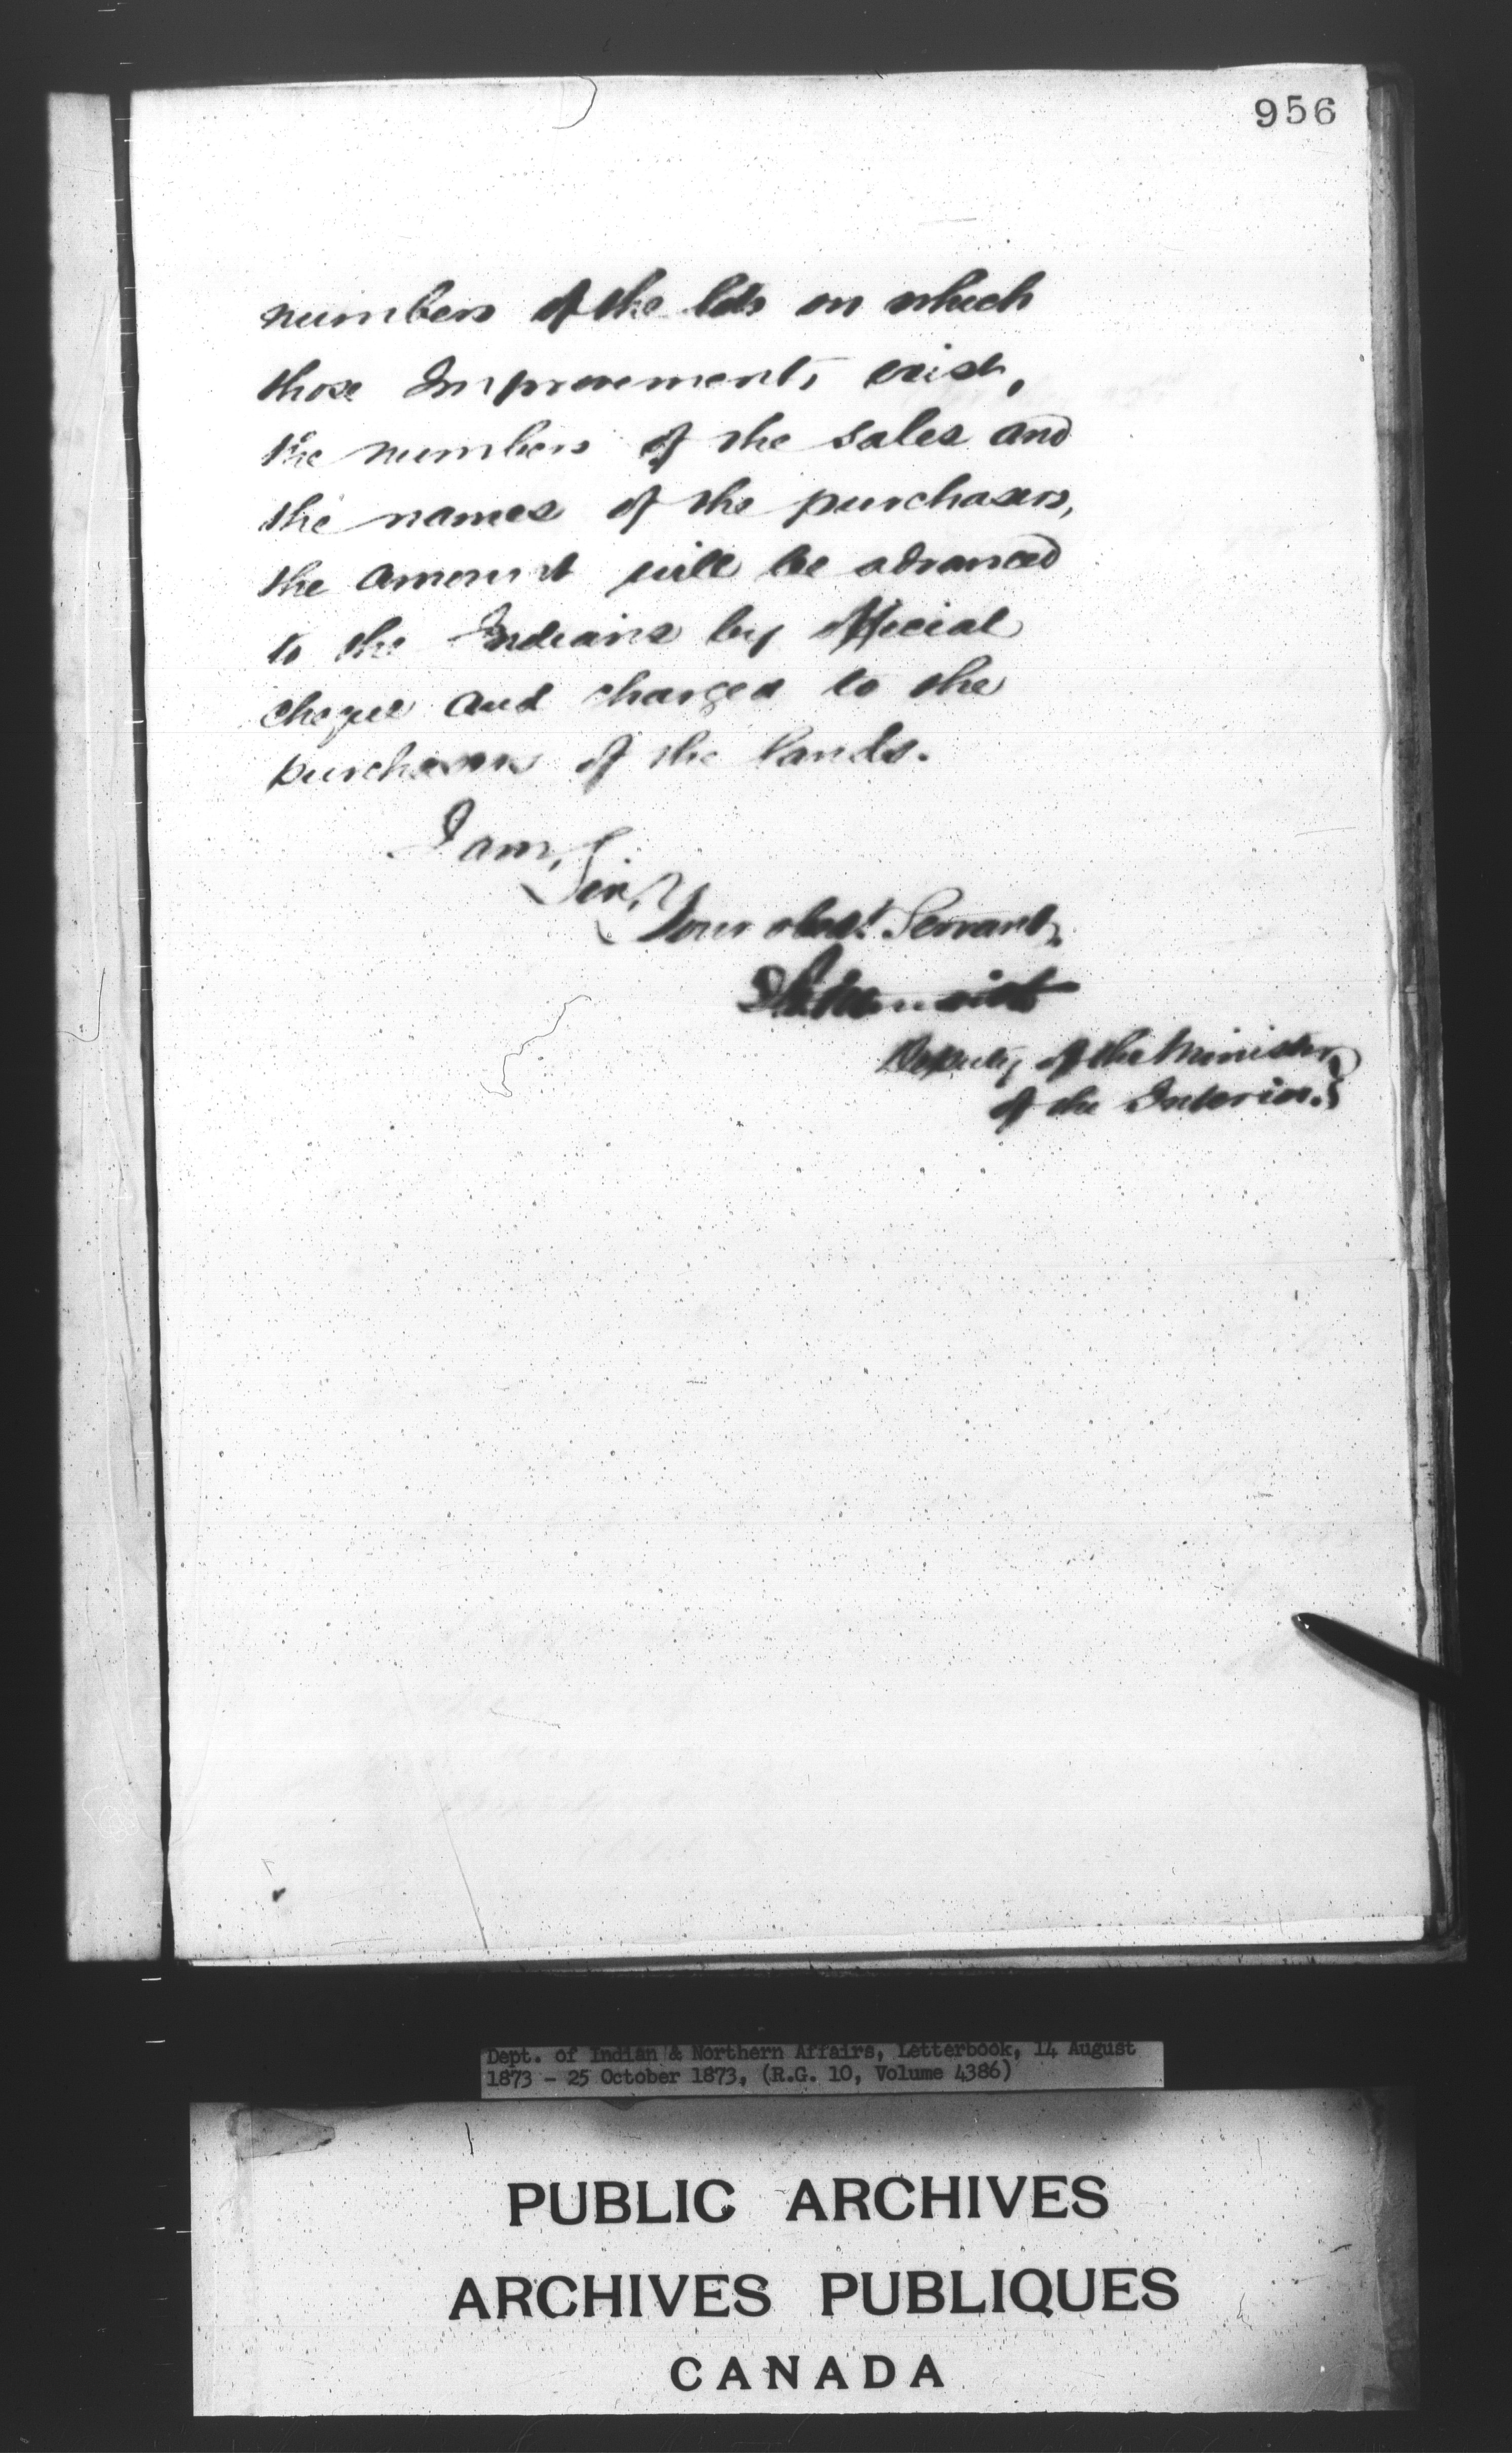 956
numbers of the lots on which
those Improvements exist,
the numbers of the sales and
the names of the purchasers,
the amount will be advanced
to the Indians by official
cheque and charged to the
purchasers of the lands.
I am,
Sir,
Your obedt. Servant,
Deputy of the Minister
of the Interior.
Dept. of Indian & Northern Affairs, Letterbook, 14 August
1873 - 25 October 1873, (R.G. 10, Volume 4386)
PUBLIC ARCHIVES
ARCHIVES PUBLIQUES
CANADA